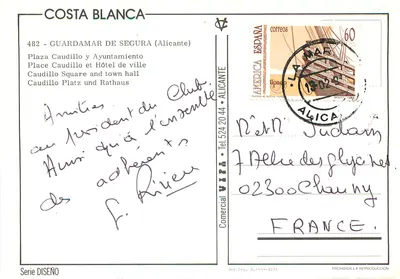 COSTA BLANCA
482 - GUARDAMAR DE SEGURA (Alicante)
Plaza Caudillo y Ayuntamiento
Place Caudillo et Hôtel de ville
Caudillo Square and town hall
Caudillo Platz und Rathaus
Amitiés
au président du Club
Ainsi qu'à l'ensemble
des adhérents
Comercial VIPA • Tel. 524 20 44 • ALICANTE
correos
ESPAÑA
AMERICA
60
ALICA
7 Allée des glycines
02300 Chauny
FRANCE.
Serie DISEÑO
PROHIBIDA LA REPRODUCCION